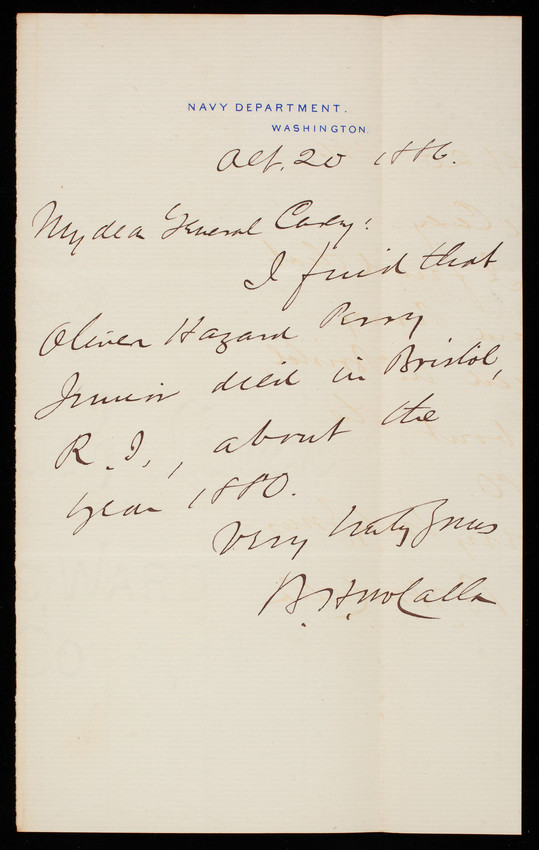 NAVY DEPARTMENT.
WASHINGTON.
Oct. 20 1886.
My dear General Casey:
I find that
Oliver Hazard Perry
Junior died in Bristol,
R.I., about the
year 1880.
Very truly yours
B.H. McCalla